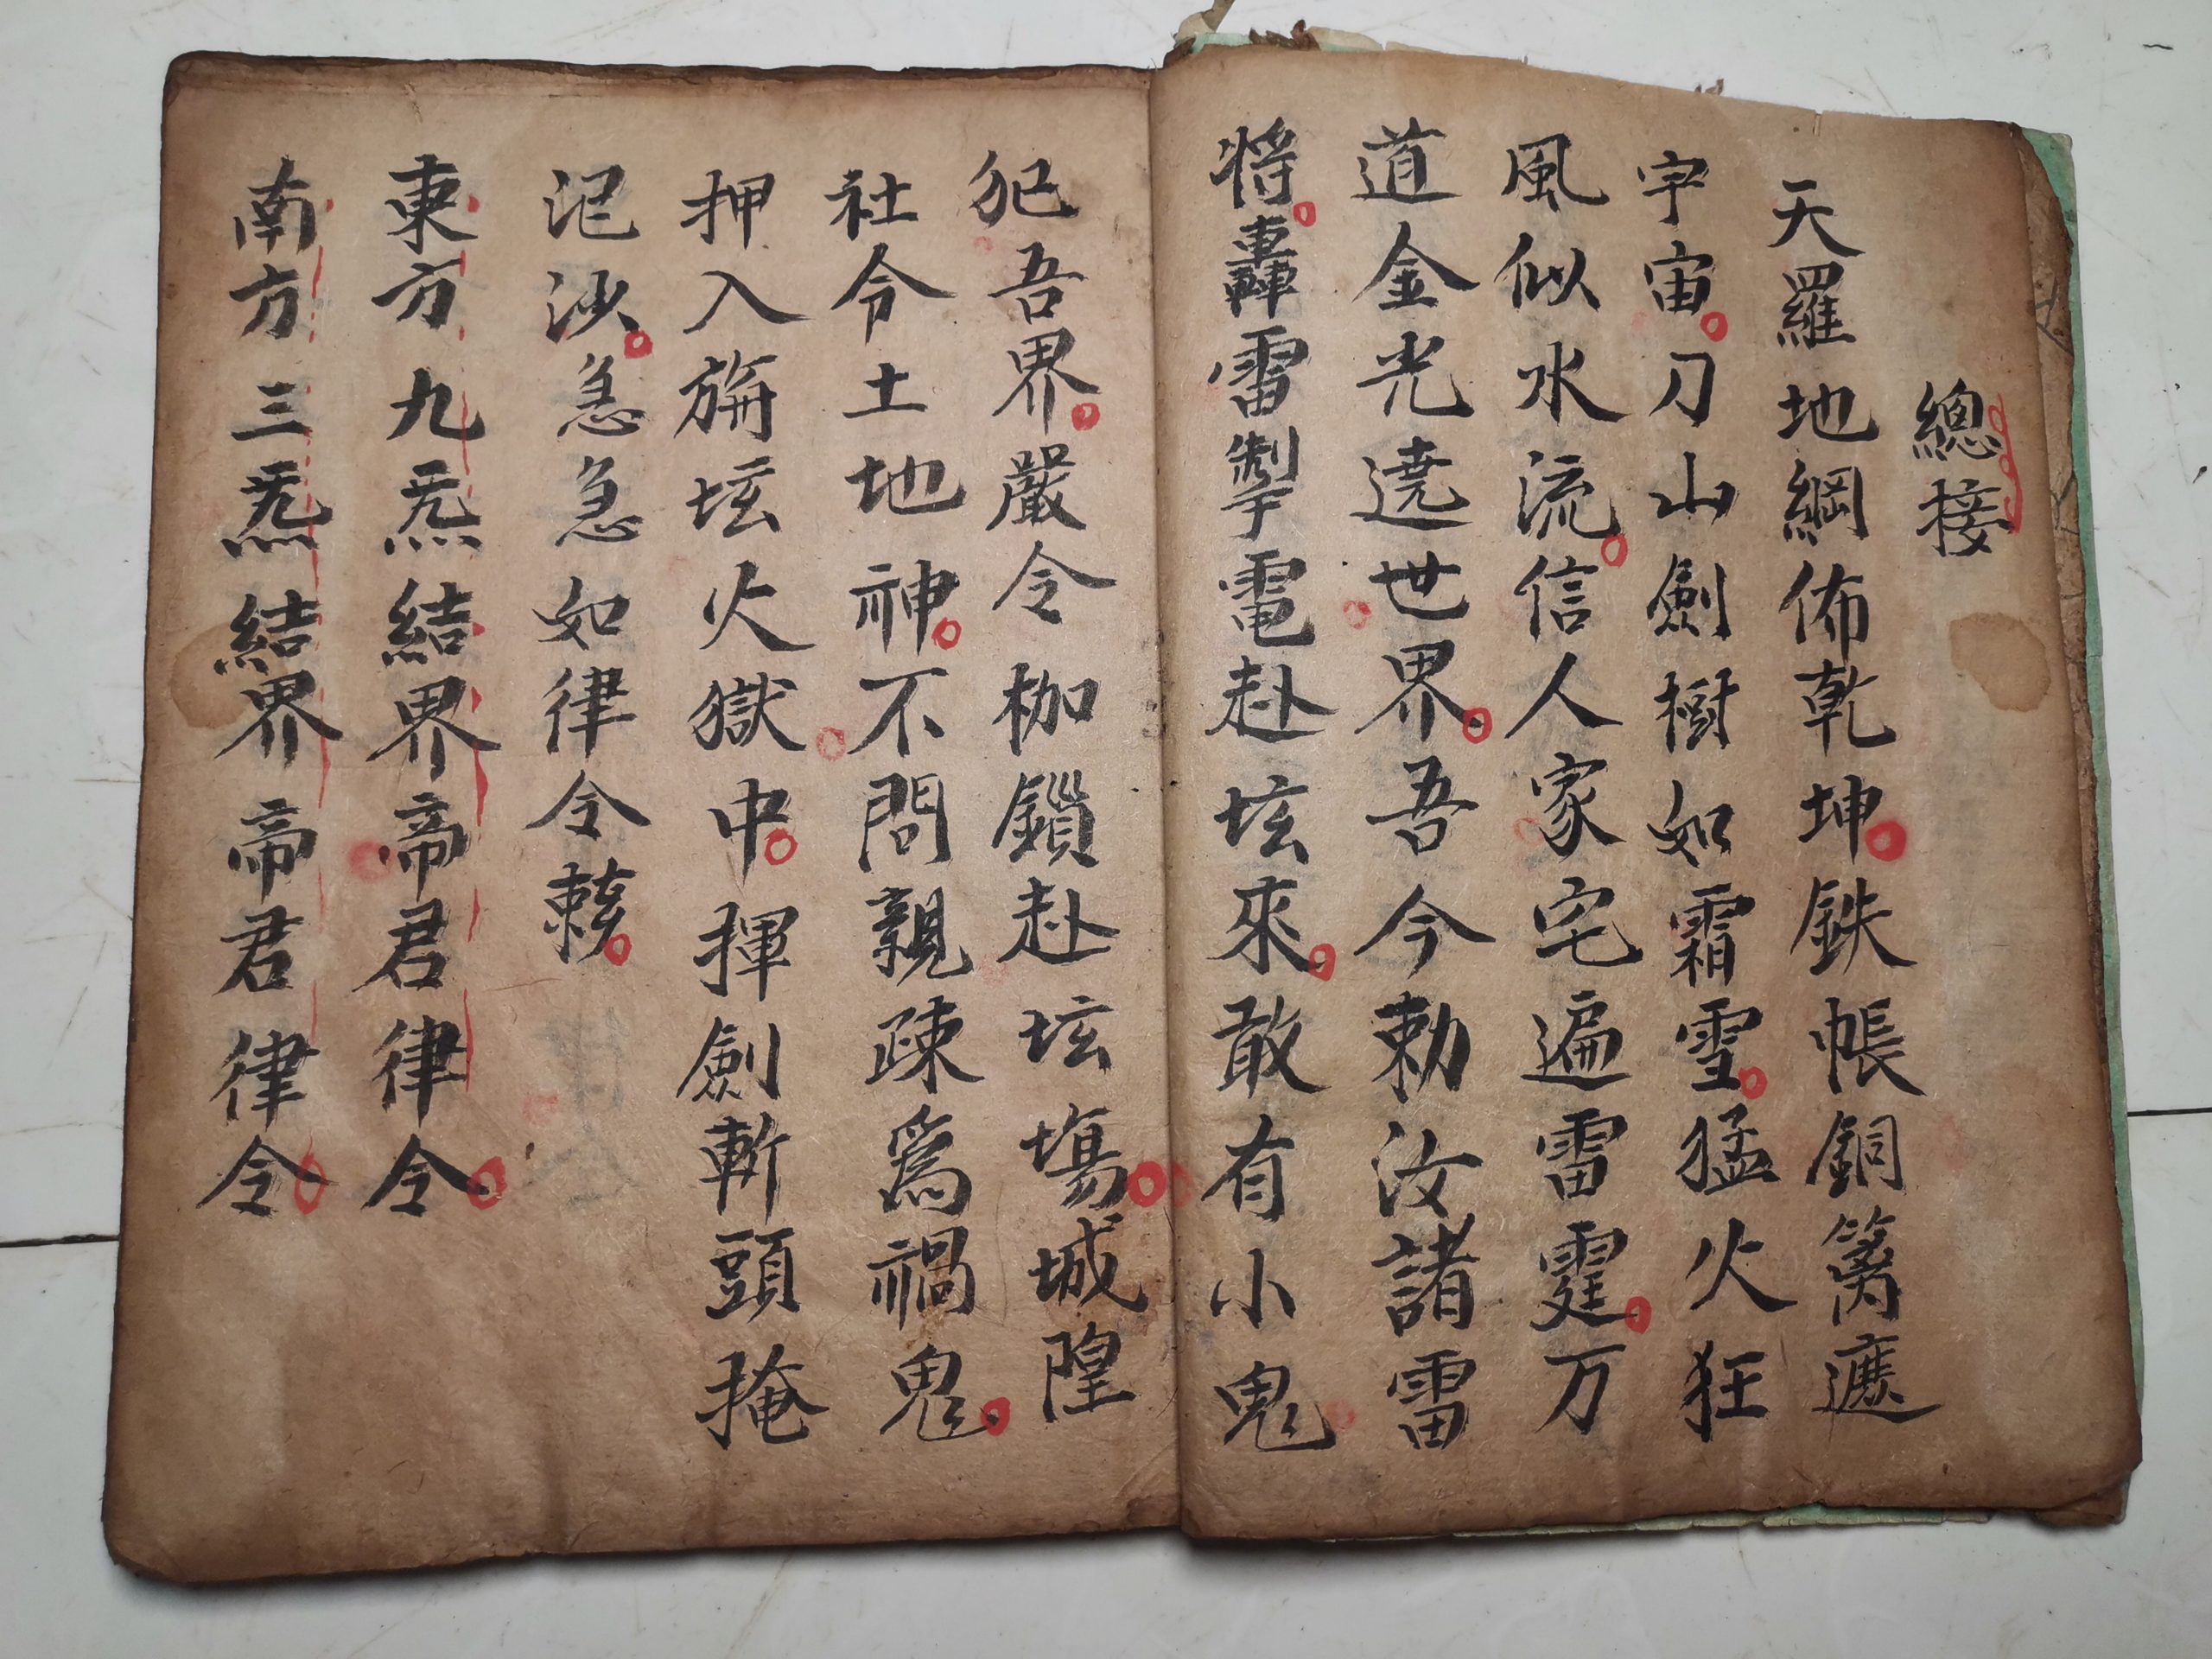 總接
天羅地綱佈乾坤鉄帳銅篱遮
宇宙刀山劍樹如霜雪猛火狂
風似水流信人家宅遍雷霆万
道金光遶世界吾今勅汝諸雷
將轟雷掣電赴坛來敢有小鬼
犯吾界嚴令枷鎖赴坛塲城隍
社令土地神不問親疎為禍鬼
押入坛火獄中揮劍斬頭掩
沙急急如律令
東方九炁結界帝君律令
南方三炁結界帝君律令